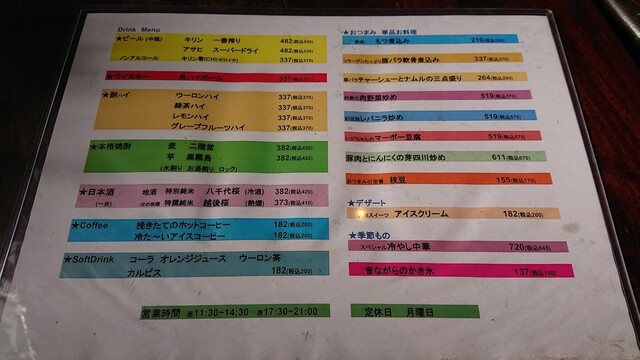 Drink Menu
★ビール(中瓶) キリン 一番搾り 482(税込530)
アサヒ スーパードライ 482(税込530)
ノンアルコール キリン 337(税込370)
★ウイスキー 角ハイボール 337
★酎ハイ ウーロンハイ 337(税込370)
緑茶ハイ 337(税込370)
レモンハイ 337(税込370)
グレープフルーツハイ 337(税込370)
★本格焼酎 麦 二階堂 382(税込420)
芋 黒霧島 382(税込420)
(水割り お湯割り ロック)
★日本酒 地酒 特別純米 八千代桜 (冷酒) 382(税込420)
(一合) 特撰純米 越後桜 (熱燗) 373(税込410)
★Coffee 挽きたてのホットコーヒー 182(税込200)
冷た~いアイスコーヒー 182(税込200)
★SoftDrink コーラ オレンジジュース ウーロン茶
カルピス 182(税込200)
★おつまみ 単品お料理
もつ煮込み
豚バラ軟骨煮込み 337(税込370)
チャーシューとナムルの三点盛り 264(税込290)
肉野菜炒め 519(税込570)
レバニラ炒め 519(税込570)
マーボー豆腐 519(税込570)
豚肉とにんにくの芽四川炒め 611(税込670)
おつまみの定番 枝豆 155(税込170)
★デザート
アイスクリーム 182(税込200)
★季節もの
スペシャル冷やし中華 720
昔ながらのかき氷 137(税込150)
営業時間 昼11:30~14:30 夜17:30~21:00
定休日 月曜日